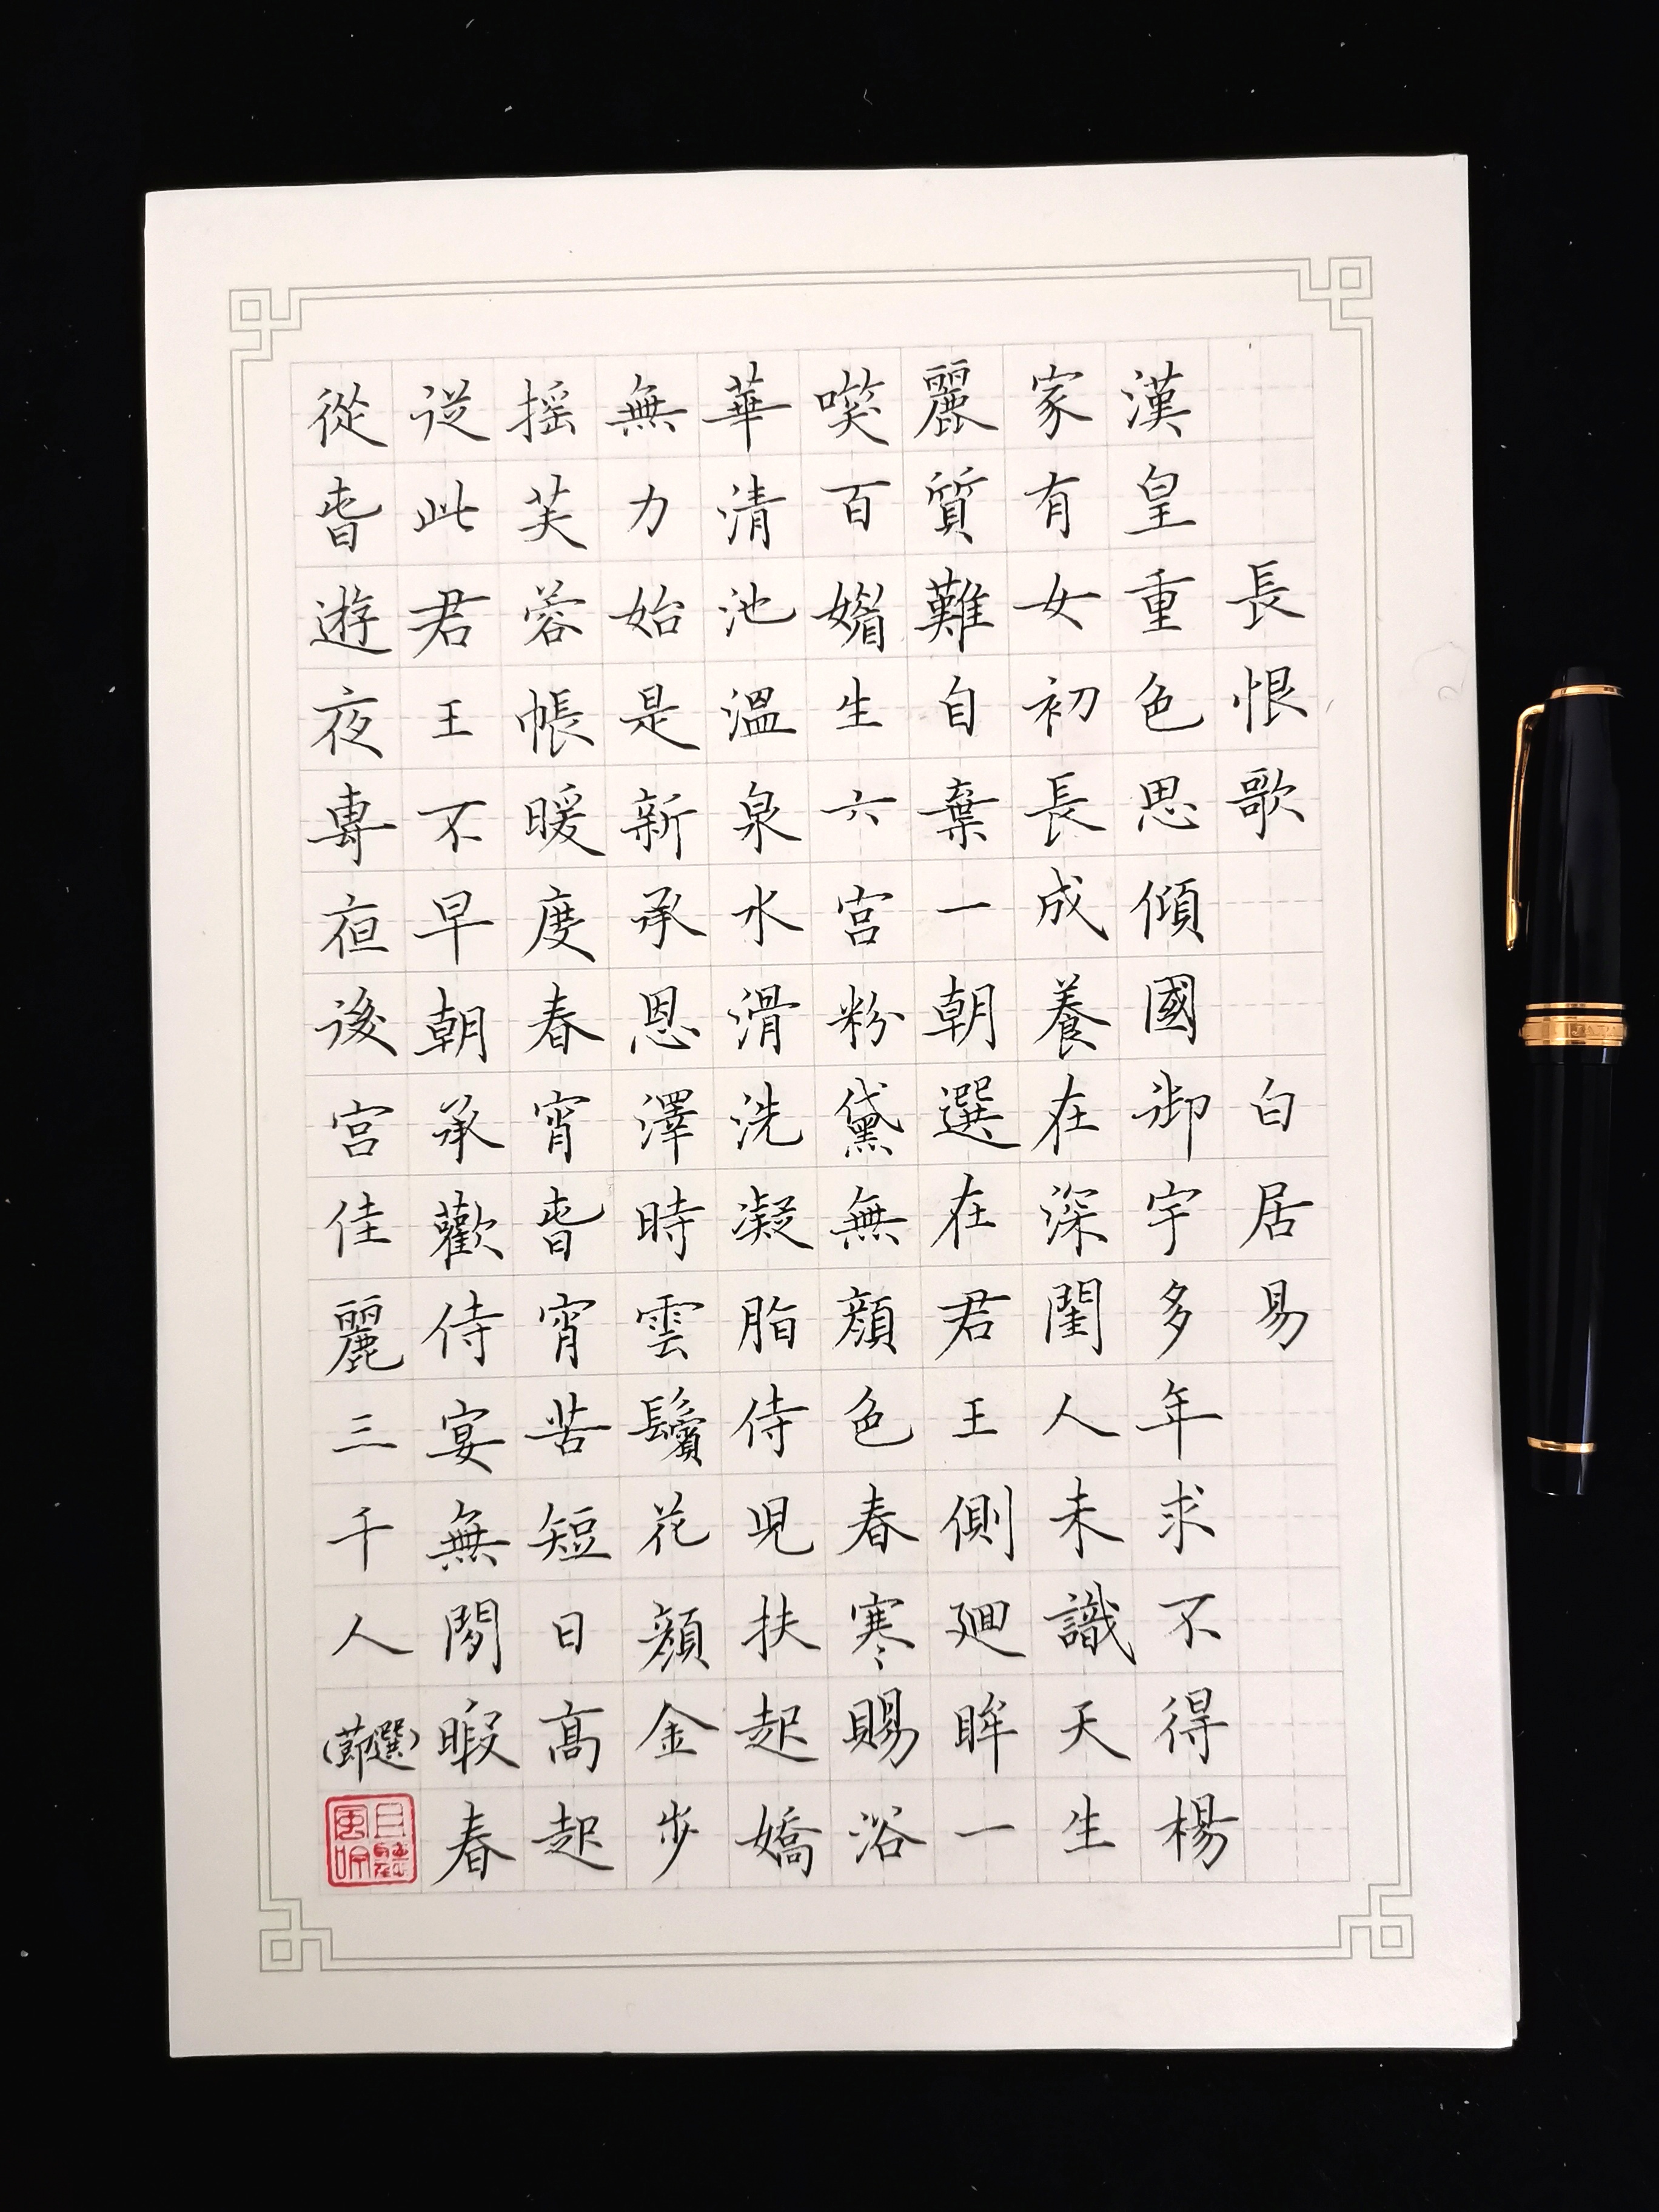 長恨歌 白居易
漢皇重色思傾國御宇多年求不得楊
家有女初長成養在深閨人未識天生
麗質難自棄一朝選在君王側廻眸一
笑百媚生六宮粉黛無顏色春寒賜浴
華清池溫泉水滑洗凝脂侍兒扶起嬌
無力始是新承恩澤時雲鬢花顏金步
搖芙蓉帳暖度春宵春宵苦短日高起
從此君王不早朝承歡侍宴無閒暇春
從春遊夜專夜後宮佳麗三千人(節選)
且聽風吟